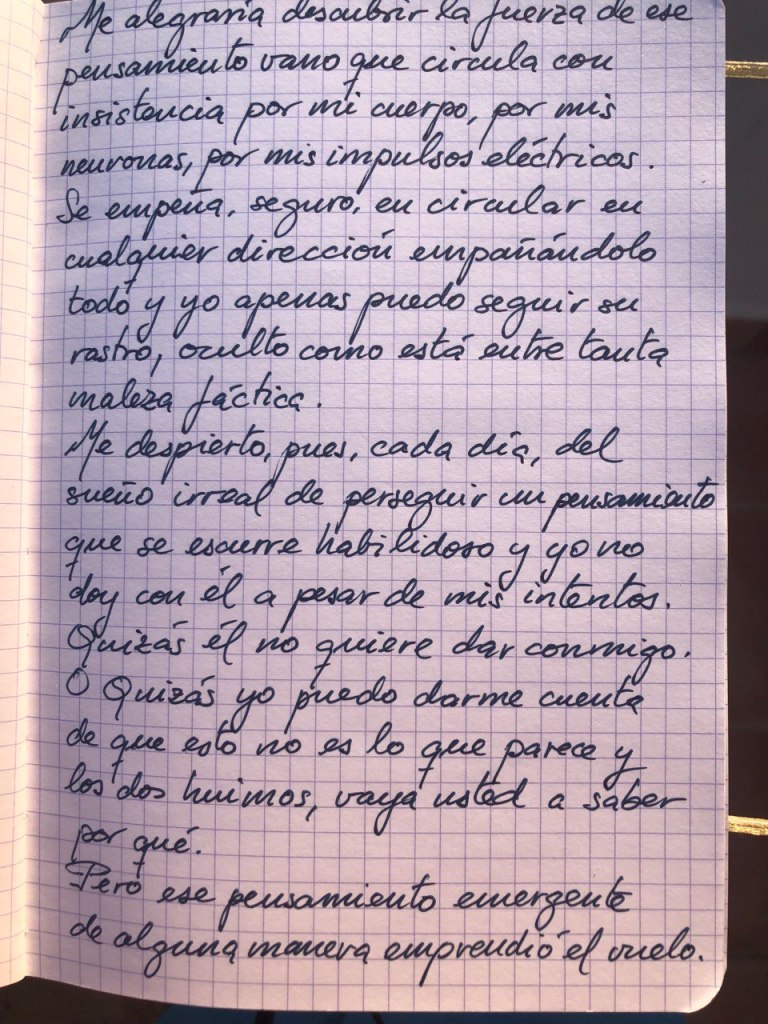 Me alegraría descubrir la fuerza de ese
pensamiento vano que circula con
insistencia por mi cuerpo, por mis
neuronas, por mis impulsos eléctricos.
Se empeña, seguro, en circular en
cualquier dirección empañándolo
todo y yo apenas puedo seguir su
rastro, oculto como está entre tanta
maleza fáctica.
Me despierto, pues, cada día, del
sueño irreal de perseguir un pensamiento
que se escurre habilidoso y yo no
doy con él a pesar de mis intentos.
Quizás él no quiere dar conmigo.
O Quizás yo puedo darme cuenta
de que esto no es lo que parece y
los dos huimos, vaya usted a saber
por qué.
Pero ese pensamiento emergente
de alguna manera emprendió el vuelo.